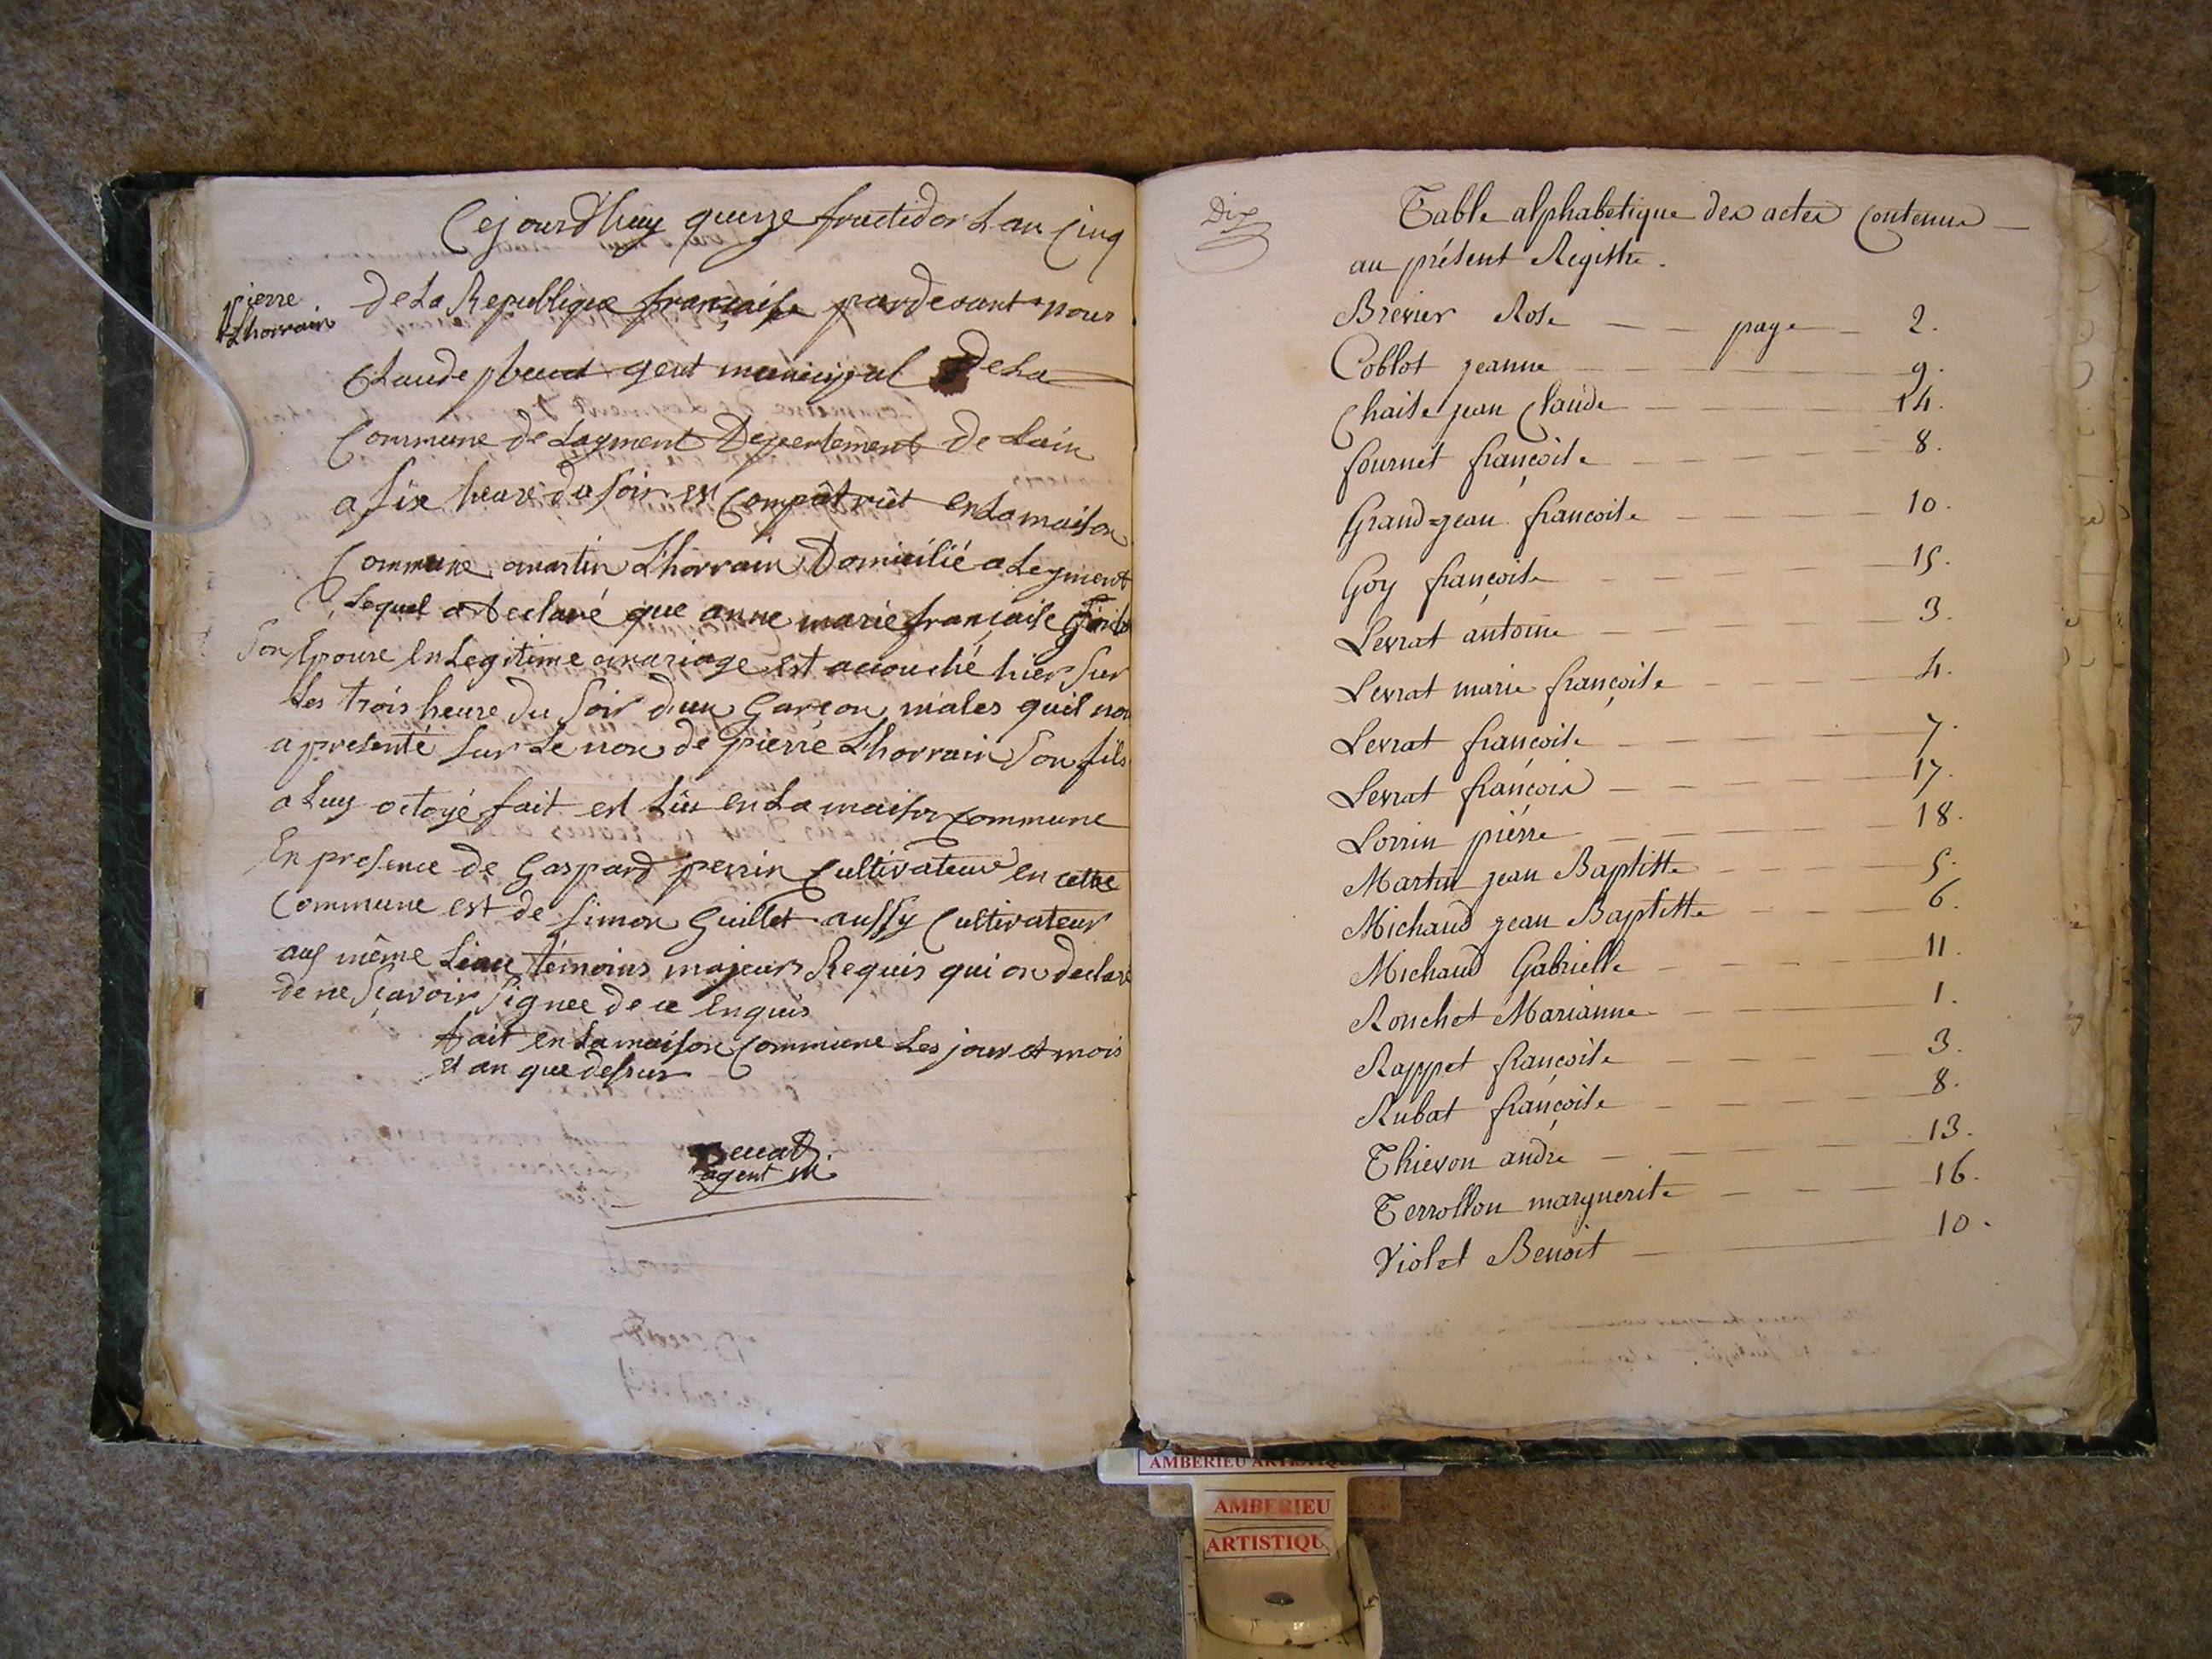 Cejourdhuy quinze fructidor Lan Cinq
pierre
Lhorrain
de La Republique française pardevant nous
Claude agent municipal De La
Commune de Leyment Departement De Lain
a six heure du soir est Comparût en La maison
Commune martin Lhorrain Domicilié a Leyment
Lequel a declaré que anne marie françoise
Son Epouse en Legitime mariage est accouché hier sur
Les trois heure du soir dun Garçon males quil nou
a presenté sur Le nom de pierre Lhorrain son fils
a Luy octoyé fait est Lûe en La maison Commune
En presence de Gaspard perrin Cultivateur en cette
Commune est de Simon Guillet aussy Cultivateur
aus même Lieau témoins majeurs Requis qui on declaré
de ne sçavoir signee de ce Enquis
fait en La maison Commune Les jour et mois
et an que dessus
agent m
Dix
Table alphabetique des actes Contenus
au présent Registre.
Brevier Rose page 2.
Coblot jeanne 9.
Chaise jean Claude 14.
fournet françoise 8.
Grand=jean francoise 10.
Goy françoise 15.
Levrat antoine 3.
Levrat marie françoise 4.
Levrat françoise 7.
Levrat françois 17.
Lorrin piérre 18.
Martin jean Baptiste 5.
Michaud jean Baptiste 6.
Michaud Gabrielle 11.
Ronchet Marianne 1.
Rappet françoise 3.
Rubat françoise 8.
Thievon andré 13.
Terrollon marguerite 16.
Violet Benoit 10.
AMBERIEU
AMBERIEU
ARTISTIQU